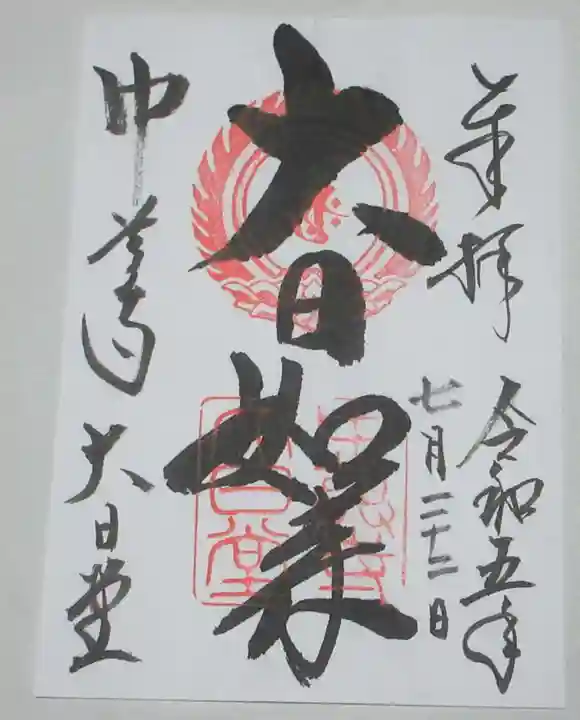 奉拝
令和五年
七月二十二日
大日如来
大日堂
大日堂